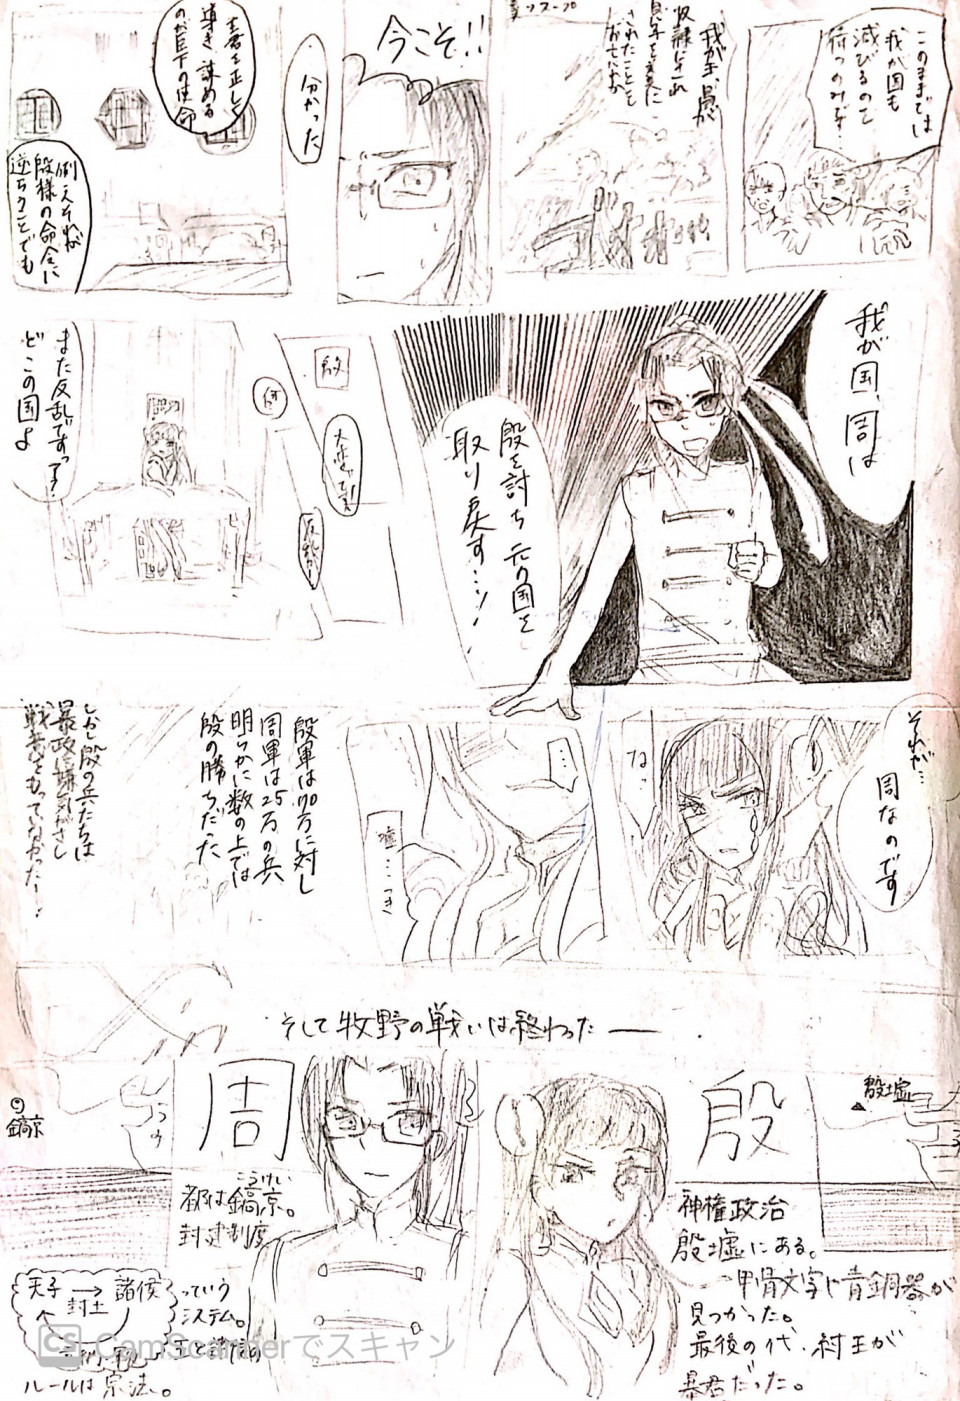 このままでは
我が国も
滅びるのを
待つのみぞ!
我が王、昌が
されたことを
今こそ!!
分かった
主君を正しく
導き、諌める
のが臣下の使命
例えそれが
殷様の命令に
逆らうことでも
我が国、周は
殷を討ち元の国を
取り戻す…ッ!
殷
何
大変です!!
また反乱ですって?
どこの国よ
それが…
周なのです
なっ
…
嘘……つき
殷軍は70万に対し
周軍は25万の兵
明らかに数の上では
殷の勝ちだった
しかし殷の兵たちは
最政に嫌気がさし
戦意などもっていなかった…!
そして牧野の戦いは終わった―
殷墟
殷
神権政治
殷墟にある。
甲骨文字や青銅器が
見つかった。
最後の代、紂王が
暴君だった。
周
こうけい
都は鎬京。
封建制度
っていう
システム。
天子 → 諸侯
封土
ルールは宗法。
鎬京
CS CamScannerでスキャン